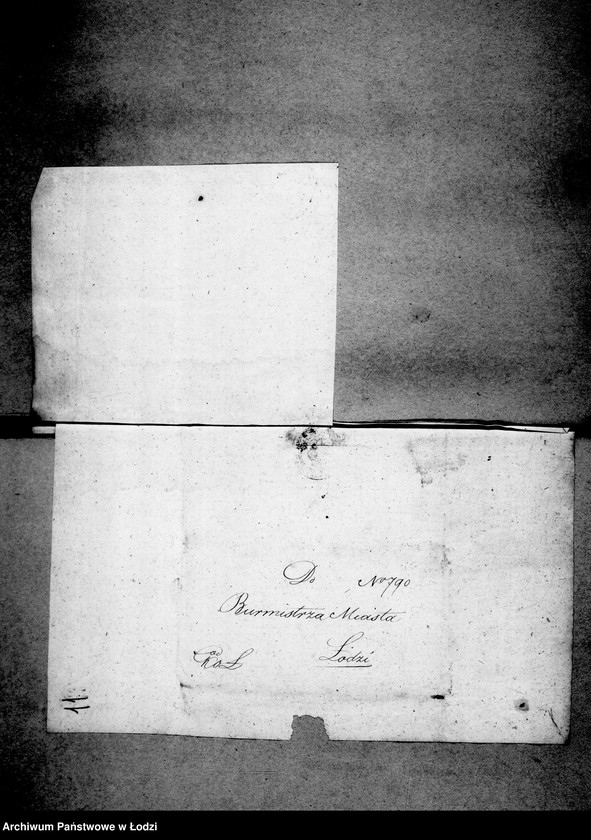 Do No 790
Burmistrza Miasta
Łodzi
11.
Archiwum Państwowe w Łodzi